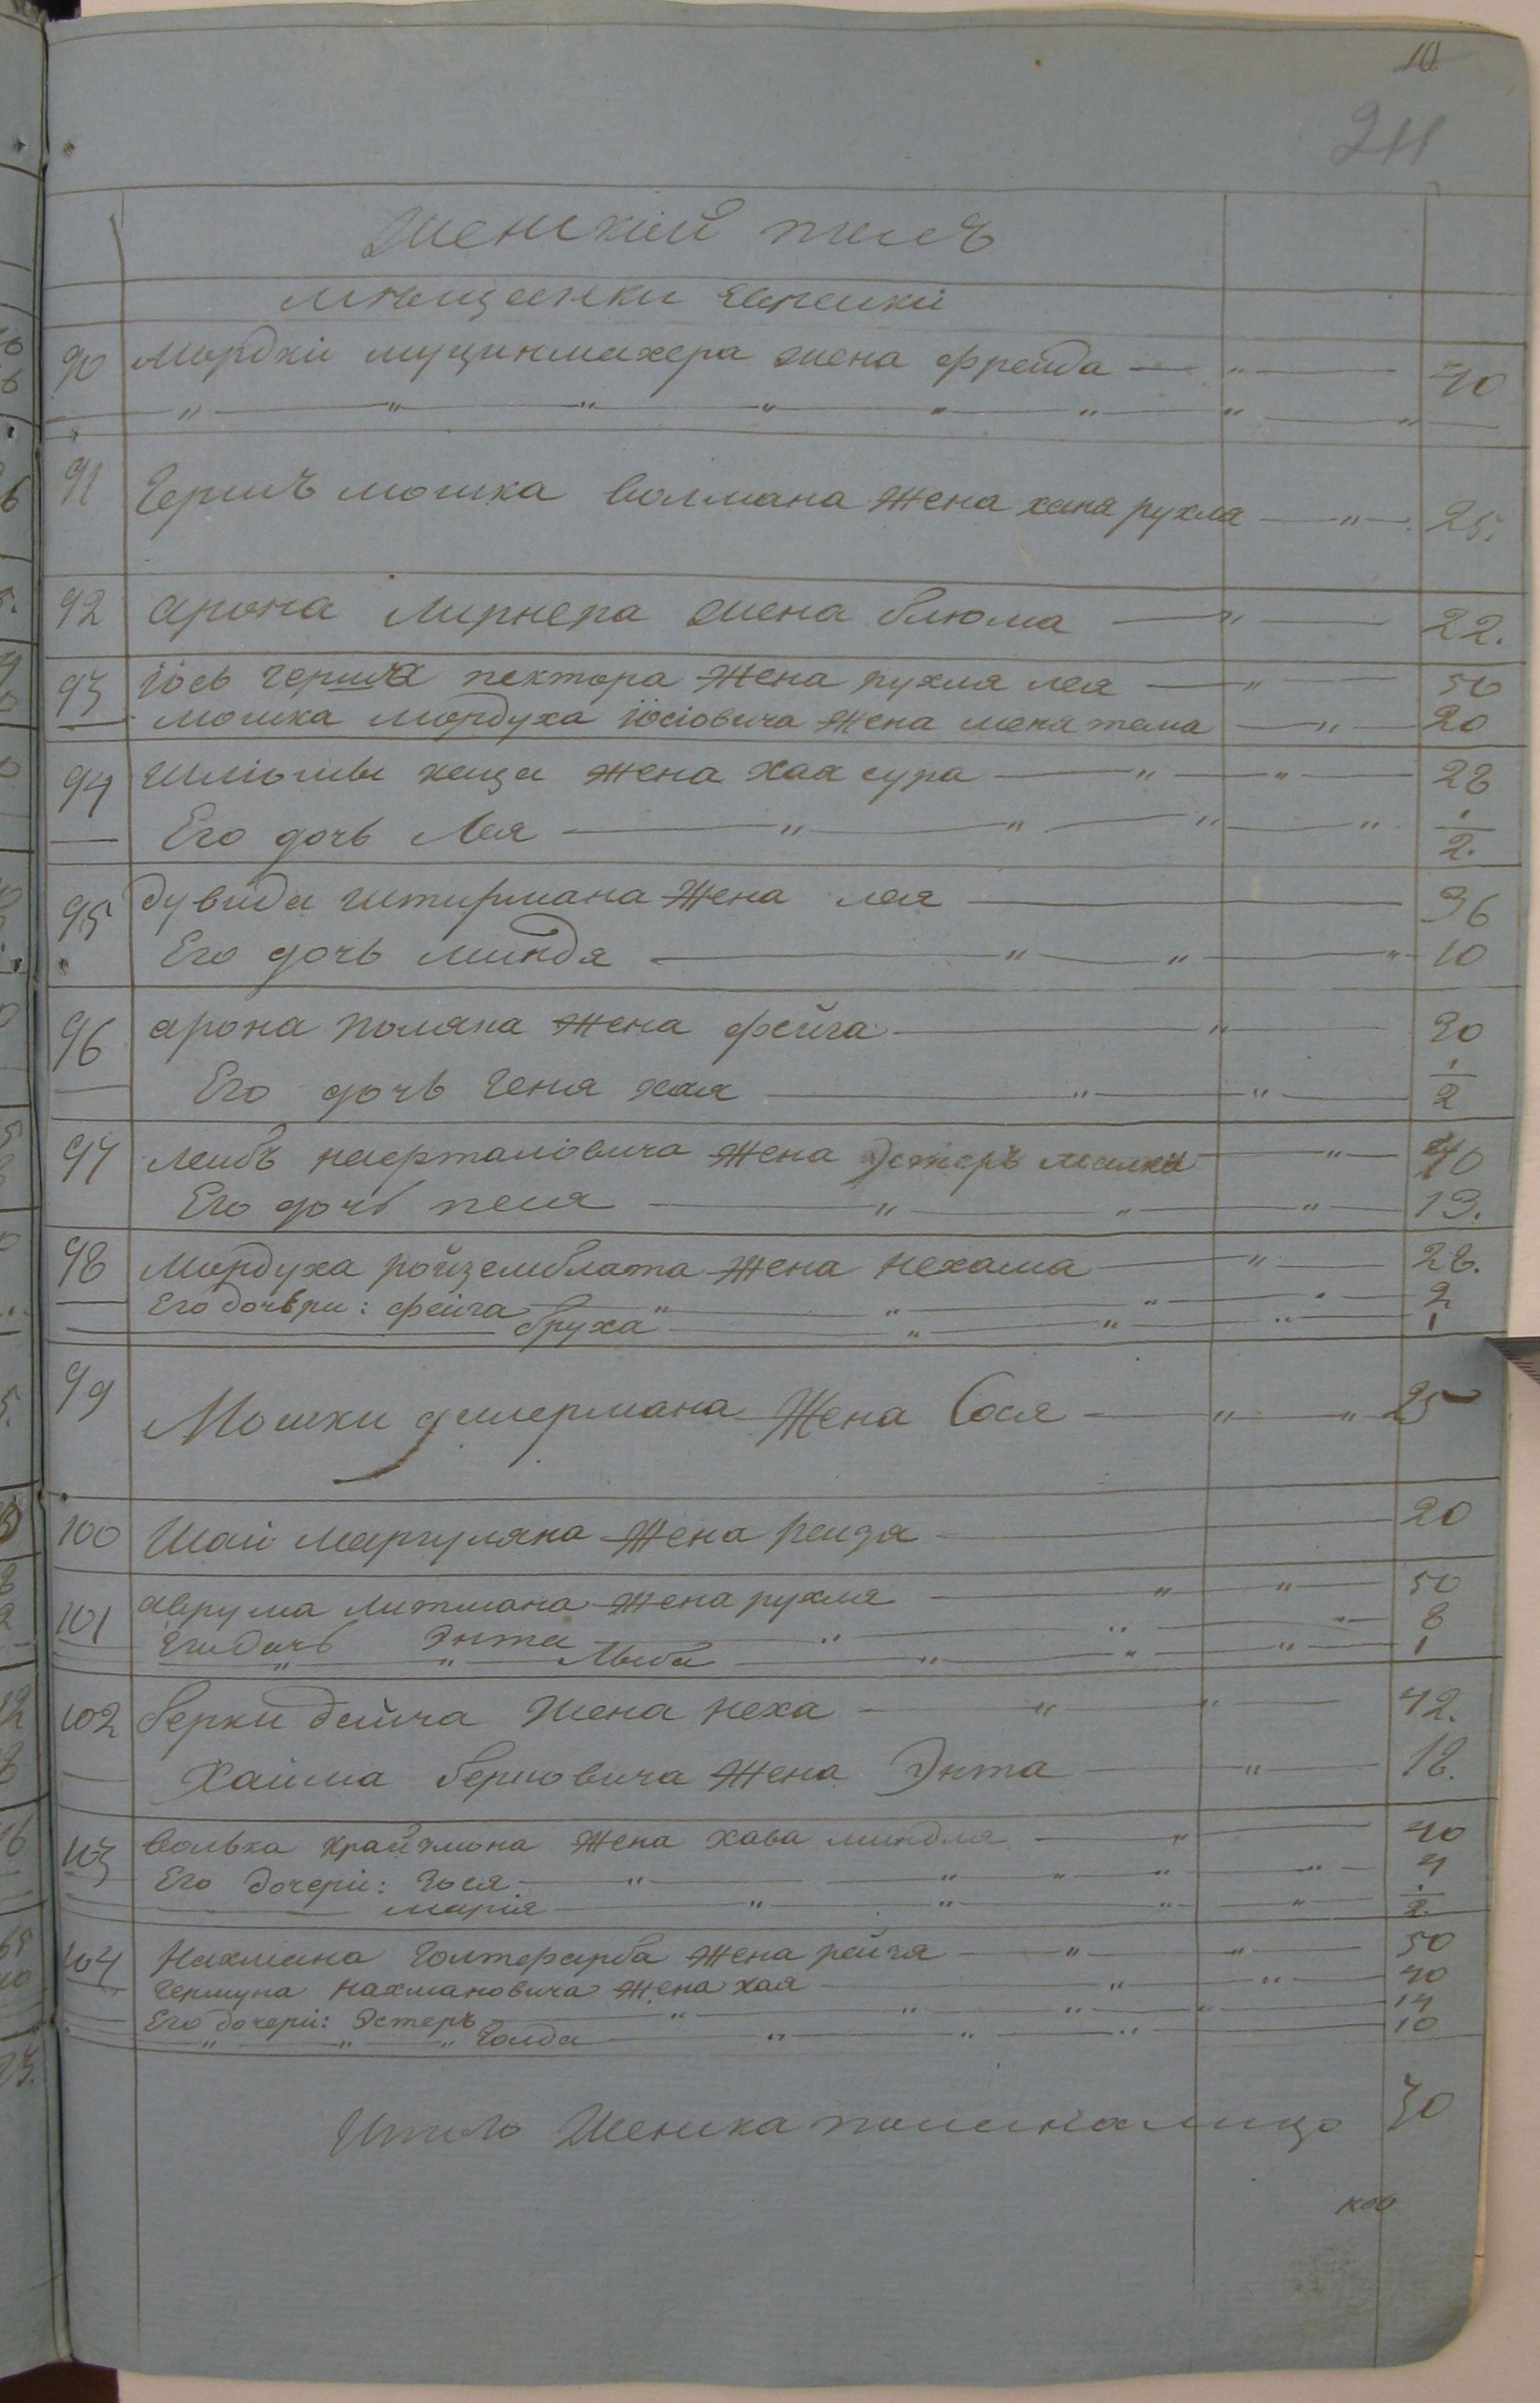 10
211
Женскій полъ
мѣщанки Еврейки
90 Мордкi муцинмахера жена фрейда — " — 40
" " " " " " " "
91 Гершъ мошка волмана жена хана рухля — " — 25.
92 арона Лирнера жена блюма — " — 22.
93 Iось герша пектора жена рухля лея — " — 50
мошка мордуха iосiовича жена меня тема — " — 20
94 Шлiомы кеца жена хая сура — " — " — 28
Его дочь Лея — " — " — " — " 1/2.
95 дувида штирмана жена лея — 36
Его дочь миндя — " — " — " 10
96 арона поляка жена фейга — " — 20
Его дочь геня хая — " — " — 1/2
97 Лейбъ нафталовича жена Эстеръ малка — " — 40
Его дочь песя — " — " — " — 13.
98 Мордуха ройземблата жена нехама — " — 28.
Его дочьри: фейга — " — " — " — " — 2
бруха — " — " — " — 1
99 Мошки дишермана жена Сося — " — " 25
100 Шаи Маргуляна жена рейзя — 20
101 аврума литмана жена рухля — " — " — 50
Его дочь Энта — " — " — " — 8
" — " — Люба — " — " — " — 1
102 берки дейча жена неха — " — " — 42.
Хаима берковича жена Энта — " — 18.
103 волька крайзмона жена хава миндля — " — 40
Его дочерiи: гося — " — " — " — " — " — 4
марiя — " — " — " — " — 1/2.
104 Нахмана голтфарба жена рейзя — " — " — 50
гершуна нахмановича жена хая — " — " — 40
Его дочерiи: Эстеръ — " — " — " — " — 14
" — " — " голда — " — " — " — 10
Итого Женска пола на лицо 30